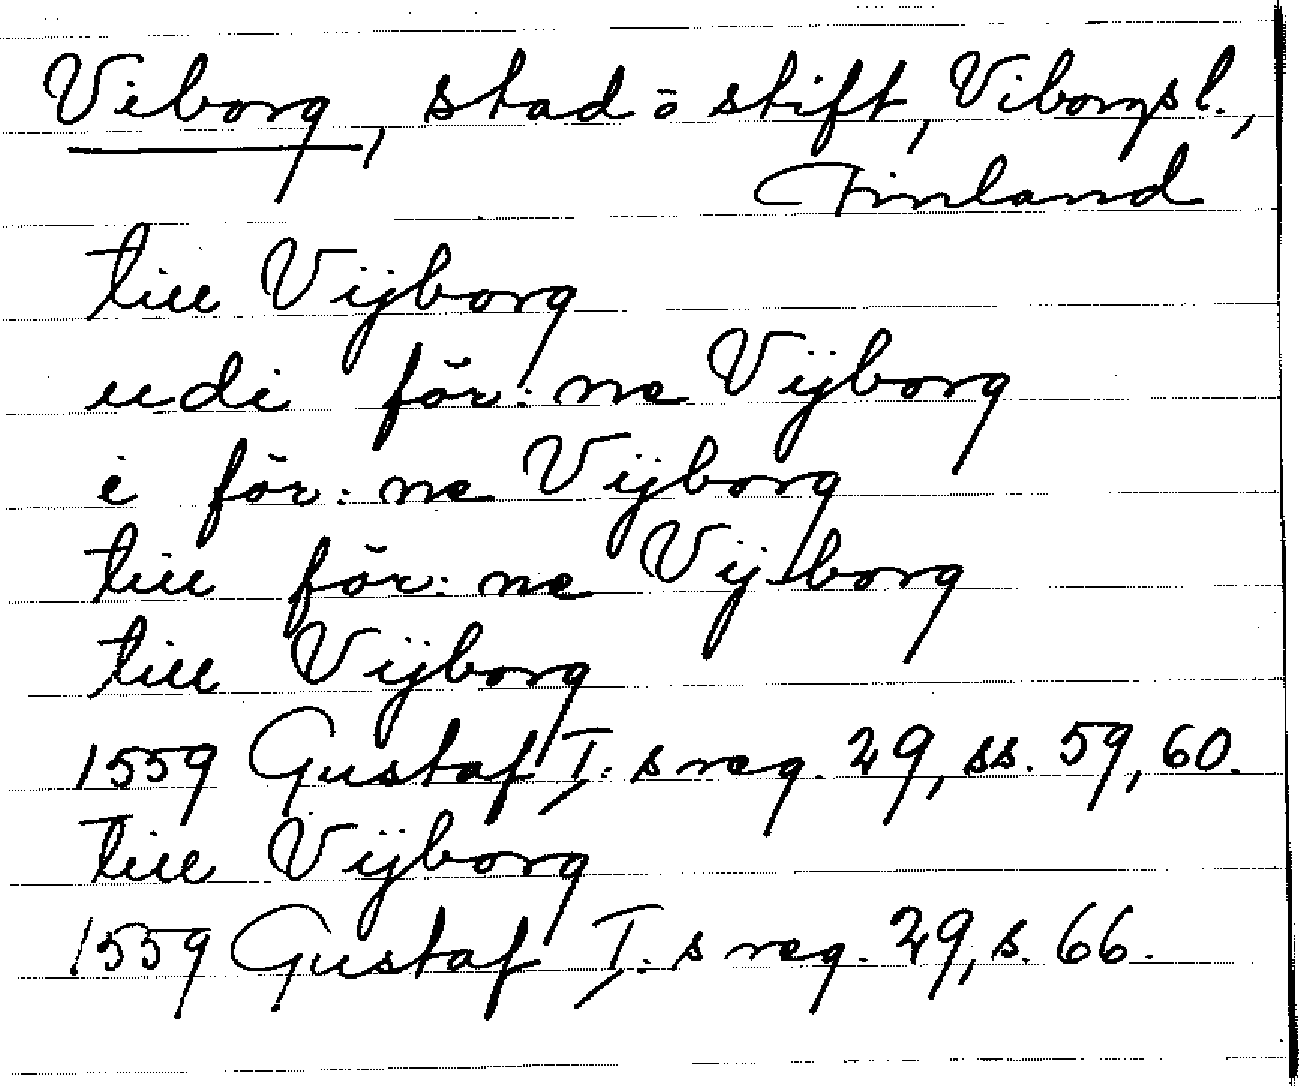 Viborg, stad o stift, Viborgs l.,
Finland
till Vijborg
udi för: ne Vijborg
i för: ne Vijborg
till för: ne Vijborg
till Vijborg
1559 Gustaf I: s reg. 29, ss. 59, 60.
till Vijborg
1559 Gustaf I: s reg. 29, s. 66.